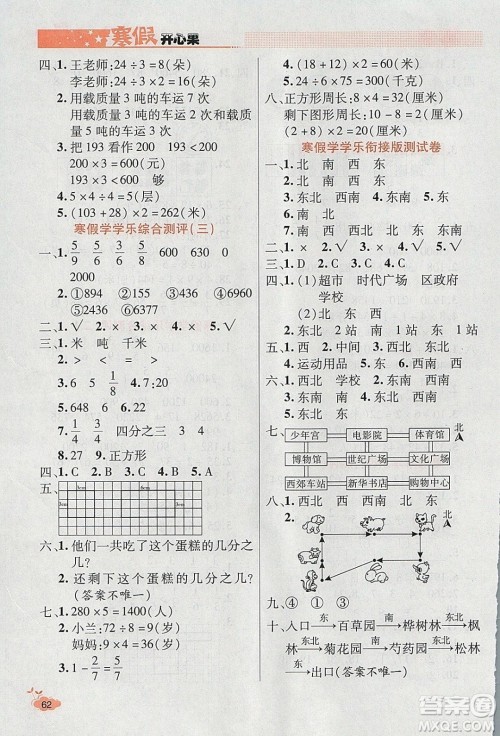 寒假 开心果
四、1. 王老师:24÷3=8(朵)
李老师:24÷3×2=16(朵)
2. 用载质量 3 吨的车运 7 次
用载质量 3 吨的车运 2 次和载质量 5 吨的车运 3 次
3. 把 193 看作 200 193≈200
200×3=600(元)
193×3<600 够
4. 5×4÷4=5(层)
5. (103+28)×5=655(千米)
寒假学学乐综合测评(三)
一、1. 5/9 5/6 3/4 600 630 6
2000
2. ①894 ②432 ③16 ④6400
⑤2436 ⑥6377
二、1.√ 2.× 3.× 4.× 5.√
三、1. 米 吨 千米
2. > < = >
3. 6 5 1/8 4. 7;20
5. 648 6 6. 0 2
7. 1/4 3/4 四分之三 3 4
8. 27 9. 正方形
四、1. C 2. B 3. A 4. B 5. C
五、
六、1. 他们一共吃了这个蛋糕的几分之几?
2. 还剩下这个蛋糕的几分之几?
(答案不唯一)
七、1. 280×5=1400(人)
2. 小兰:72÷8=9(岁)
妈妈:9×4=36(岁)
3. 1-2/7=5/7
62
4. (18+12)×2=60(厘米)
5. 75×4=300(千克)
八、正方形周长:8×4=32(厘米)
剩下图形周长:
(2+8)×2=20(厘米)
寒假学学乐衔接版测试卷
一、1. 北 南 西 东
2. 北 南 西 东
3. 东北 4. 西北 东南 5. 东
6. 西南 东北
二、1.× 2.× 3.√ 4.√ 5.√
三、1. D 2. C 3. A 4. B 5. C
四、1. (1)超市 时代广场 区政府
学校
(2)东北 1 站 南 1 站
2. 东南 东 东北 东
五、1. 西 2. 中间 3. 东南
4. 运动用品 5. 西北
六、1. 西北 学校 2. 西南
3. 东南 西南 4. 东北 西南
七、
少年宫 电影院 体育馆 北
博物馆 世纪广场 文化广场
西郊车站 新华书店 购物中心
八、1. 西北 西 西南 北 东
2.
北
九、④ ① ③
十、入口→百草园→桦树林→枫
林→菊花园→芍药园→松树
林→出口(答案不唯一)